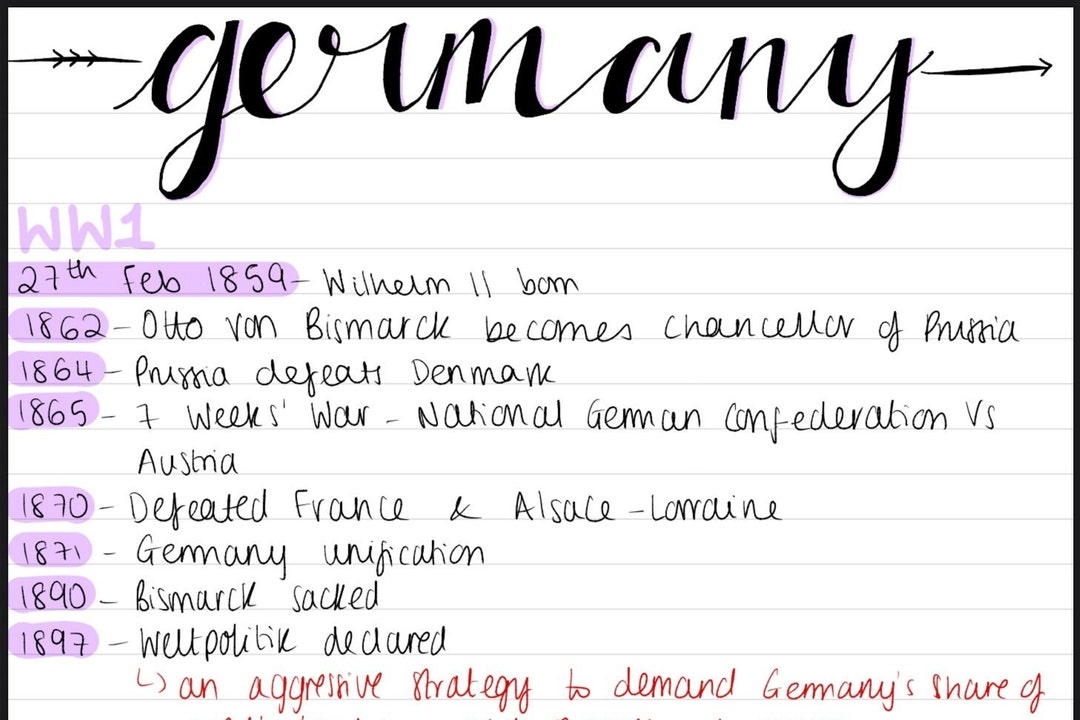 germany
WW1
27th Feb 1859 - Wilhelm II born
1862 - Otto von Bismarck becomes chancellor of Prussia
1864 - Prussia defeats Denmark
1865 - 7 Weeks' War - National German Confederation Vs
Austria
1870 - Defeated France & Alsace-Lorraine
1871 - Germany unification
1890 - Bismarck sacked
1897 - Weltpolitik declared
↳ an aggressive strategy to demand Germany's share of